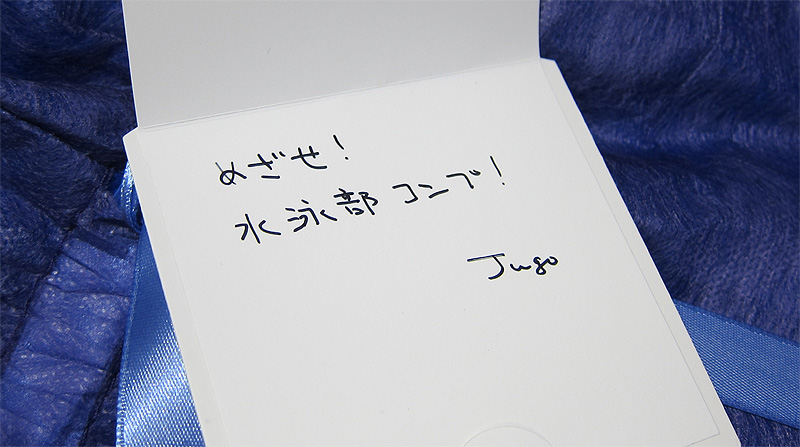 めざせ!
水泳部コンブ!
Jugo